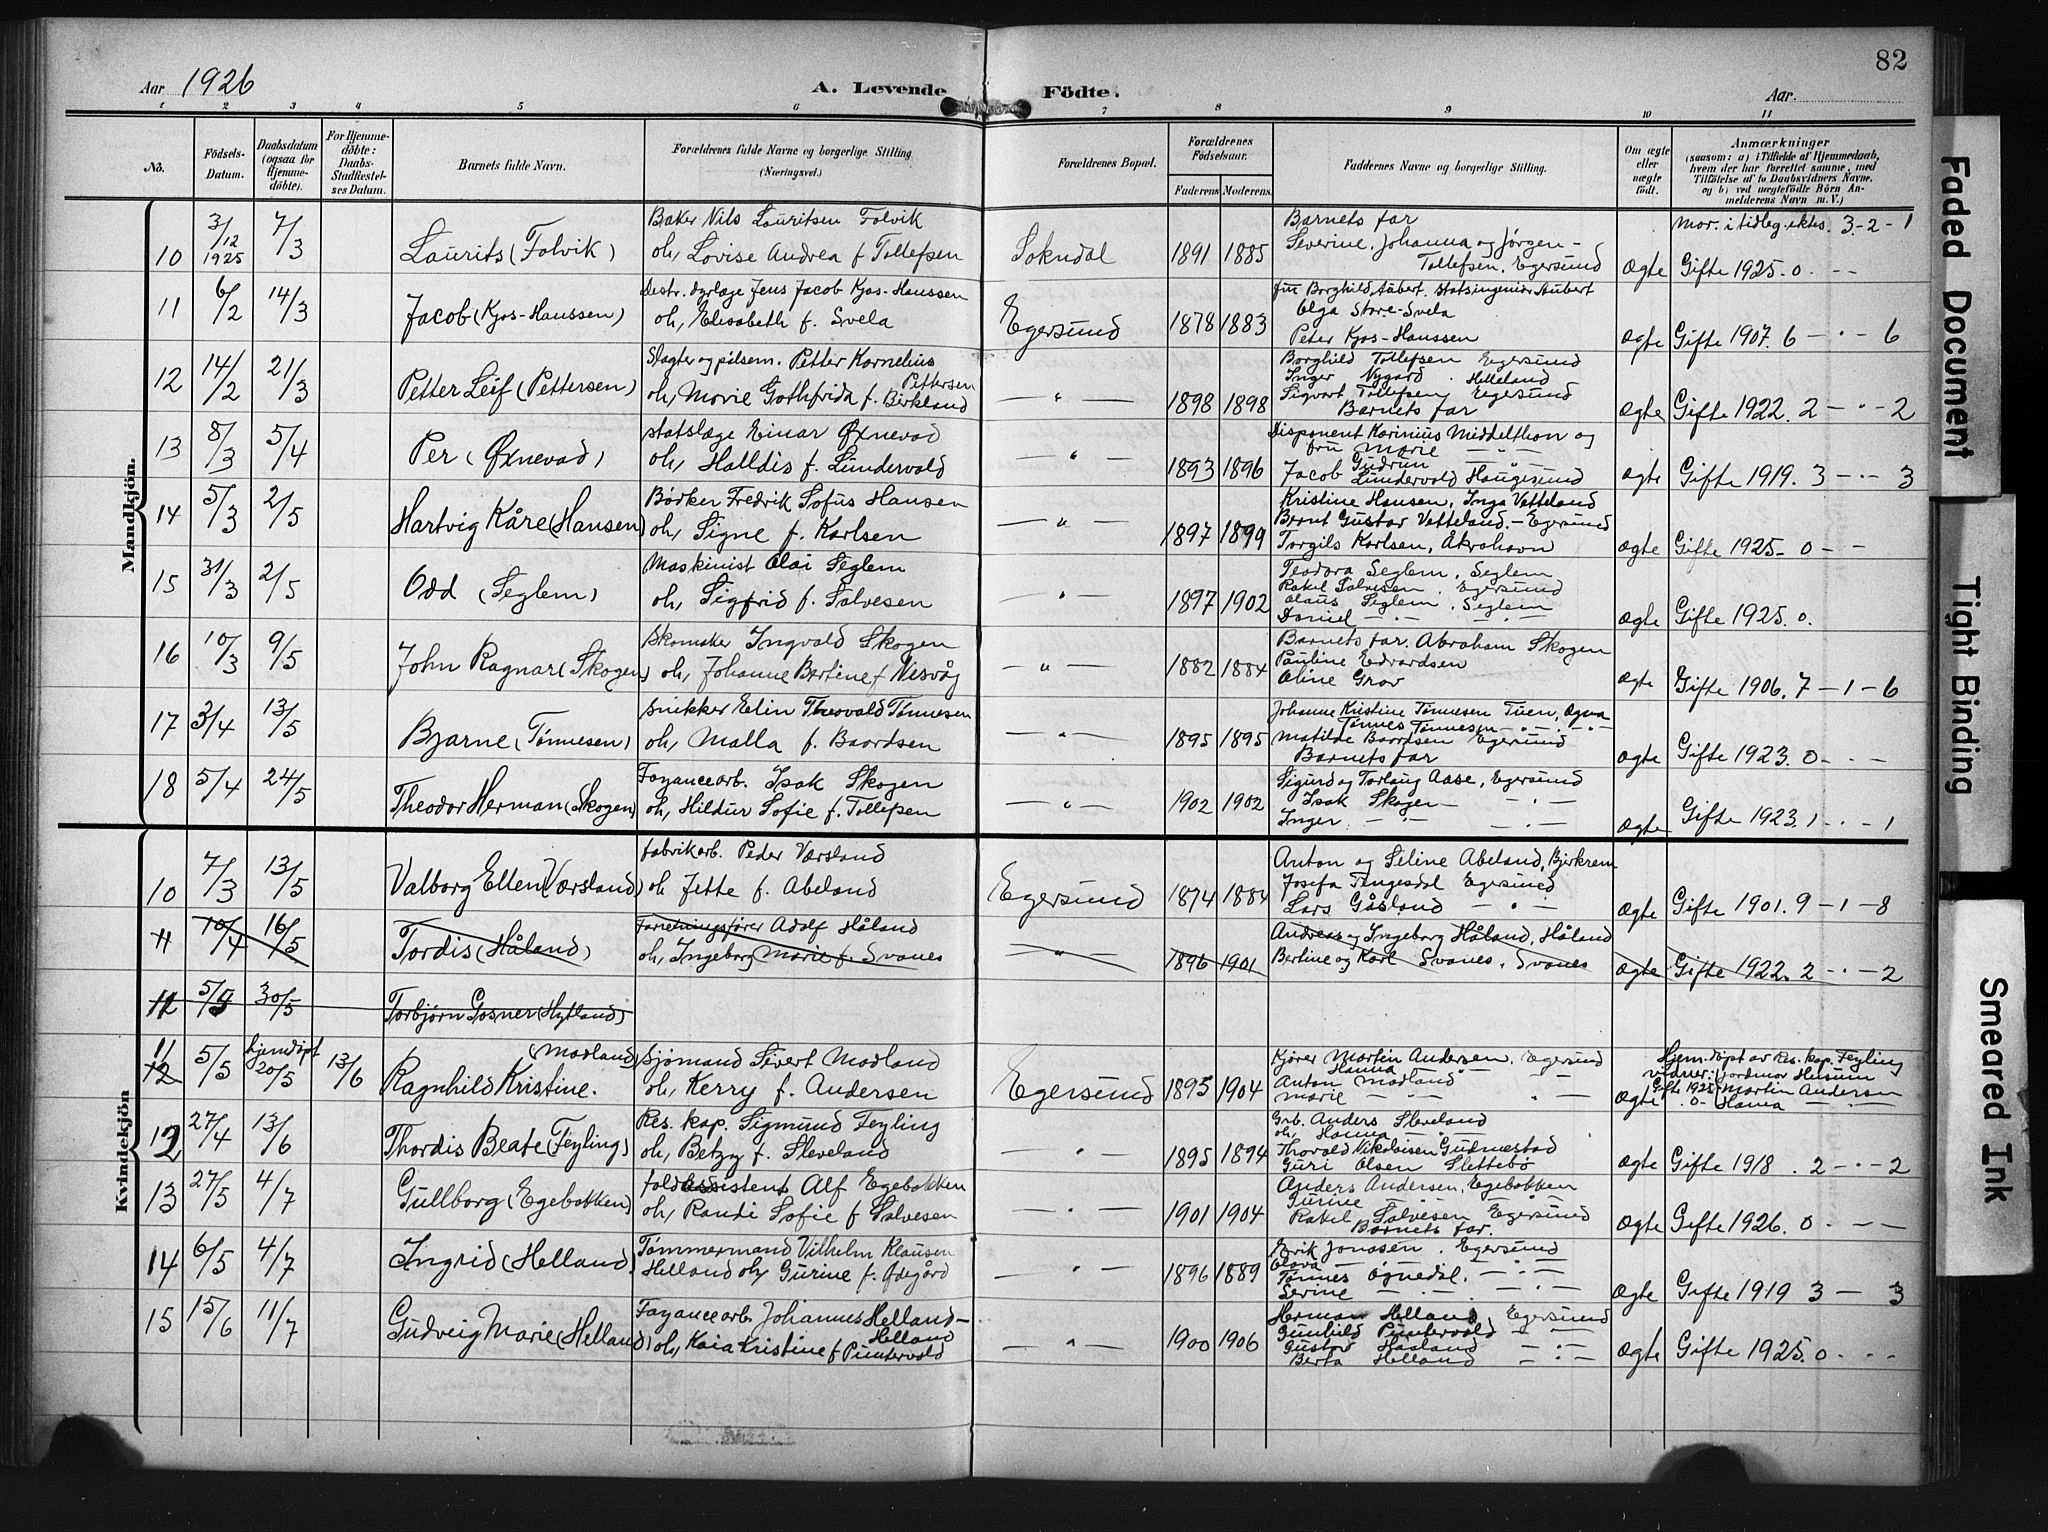 82
Aar 1926
A. Levende Födte.
Aar.
1 2 3 4 5 6 7 8 9 10 11
No.
Födsels-Datum.
Daabsdatum (ogsaa for Hjemmedöbte).
For Hjemmedöbte: Daabs-Stadfæstelses Datum.
Barnets fulde Navn.
Forældrenes fulde Navne og borgerlige Stilling (Næringsvei.)
Forældrenes Bopæl.
Forældrenes Födselsaar.
Faderens Moderens.
Faddernes Navne og borgerlige Stilling.
Om ægte eller uægte födt.
Anmærkninger
(saasom: a) i Tilfælde af Hjemmedaab, hvem der har forrettet samme, med Tilföielse af to Daabsvidners Navne, og b) ved uægtefödte Börn Anmelderens Navn m. V.)
Mandkjön.
10 3/12 1925 7/3 Laurits (Folvik)
Baker Nils Lauritsen Folvik
oh, Lovise Andrea f Tollefsen
Sokndal 1891 1885
Barnets far
Severine, Johanna og Jørgen -
Tollefsen, Egersund
Ægte
Mor. i tidleg. ektes. 3 - 2 - 1
Gifte 1925. 0 - -
11 6/2 14/3 Jacob (Kjos-Hanssen)
Destr. dyrlæge Jens Jacob Kjos-Hanssen
oh, Elisabeth f. Svela
Egersund 1878 1883
fru Borghild Aubert. Statsingeniør Aubert
Olga Store-Svela
Peter Kjos-Hanssen
ægte Gifte 1907. 6 - · - 6
12 14/2 21/3 Petter Leif (Pettersen)
Slagter og pølsem. Petter Kornelius
Pettersen
oh, Marie Gothfrida f. Birkland
— " — 1898 1898
Borghild Tollefsen Egersund
Inger Nygård. Helleland
Sigvart Tollefsen Egersund
Barnets far
ægte Gifte 1922. 2 - · - 2
13 8/3 5/4 Per (Øxnevad)
Statslæge Einar Øxnevad
oh, Halldis f. Lundervold
— " — 1893 1896
Disponent Karinius Middelthon og
fru Marie — " —
Gudrun
Jacob Lundervold Haugesund
ægte Gifte 1919. 3 - · - 3
14 5/3 2/5 Hartvig Kåre (Hansen)
Bødker Fredrik Sofus Hansen
oh, Signe f. Karlsen
— " — 1897 1899
Kristine Hansen, Inga Vatteland
Bernt Gustav Vatteland. - Egersund
Torgils Karlsen, Åkrahavn
ægte Gifte 1925 - 0 - -
15 31/3 2/5 Odd (Seglem)
Maskinist Olai Seglem
oh, Sigfrid f. Salvesen
— " — 1897 1902
Teodora Seglem. Seglem
Rakel Salvesen. Egersund
Olaus Seglem. Seglem
Daniel — · — — · —
ægte Gifte 1925. 0.
16 10/3 9/5 John Ragnar (Skogen)
Skomaker Ingvald Skogen
oh, Johanne Bertine f Nesvåg
— " — 1882 1884
Barnets far. Abraham Skogen
Pauline Edvardsen
Oline Grov
ægte Gifte 1906. 7 - 1 - 6
17 3/4 13/5 Bjarne (Tønnesen)
Snikker Elin Theovald Tønnesen
oh, Malla f. Baardsen
— " — 1895 1895
Johanne Kristine Tønnesen Tuen, Ogna
Tønnes Tønnesen — · — · —
Matilde Baardsen Egersund
Barnets far
ægte Gifte 1923. 0 - · -
18 5/4 24/5 Theodor Herman (Skogen)
Fayancearb. Isak Skogen
oh, Hildur Sofie f. Tollefsen
— " — 1902 1902
Sigurd og Torlaug Aase, Egersund
Isak Skogen — — · —
Inger. — · — — · —
ægte Gifte 1923. 1 - · - 1
Kvindekjön
10 7/3 13/5 Valborg Ellen (Værsland)
fabrikarb. Peder Værsland
oh Jette f. Abeland
Egersund 1874 1884
Anton og Seline Abeland, Bjerkrem
Josefa Tengesdal Egersund
Lars Gåsland — · —
ægte Gifte 1901. 9 - 1 - 8
11 10/4 16/5 Tordis (Håland)
Forretningsfører Adolf Håland
oh, Ingeborg Marie f. Svanes
— " — 1896 1901
Andreas og Ingeborg Håland, Håland
Bertine og Karl Svanes. Svanes
ægte Gifte 1922. 2 - · - 2
12 5/5 30/5 Torbjørn Gosner (Hytland)
11 12 5/5 hjemdøpt 20/5 13/6 Ragnhild Kristine. (Modland)
Sjømand Sivert Modland
oh, Kerry f. Andersen
Egersund 1895 1904
Kjører Martin Andersen. Egersund
Hanna — " —
Anton Modland
Marie — · — — · —
ægte
Hjem. døpt av Res. kap. Feyling
vidner: Jordmor Husum
Gifte 1925 Martin Andersen
. 0 - Hanna — · —
12 27/4 13/6 Thordis Beate (Feyling)
Res. kap. Sigmund Feyling
oh, Betzy f. Sleveland
— · — 1895 1894
Grb. Anders Sleveland
oh, Hanna — · —
Thorvald Nikolaisen Gudmestad
Guri Olsen Slettebø
ægte Gifte 1918. 2 - · - 2
13 27/5 4/7 Gullborg (Egebakken)
Toldassistent Alf Egebakken
oh, Randi Sofie f Salvesen
— · — 1901 1904
Anders Andersen, Egebakken
Gurine — · —
Rakel Salvesen Egersund
Barnets far.
ægte Gifte 1926. 0 - - -
14 6/5 4/7 Ingrid (Helland)
Tømmermand Vilhelm Klausen
Helland oh, Gurine f. Ødegård
— · — 1896 1889
Erik Jonasen. Egersund
Olava — · —
Tønnes Ognedal. — · —
Serine — · — — · —
ægte Gifte 1919 3 - 3
15 15/6 11/7 Gudveig Marie (Helland)
Fayancearb. Johannes Helland -
Helland
oh, Kaia Kristine f Puntervold
— " — 1900 1906
Herman Helland, Egersund
Gunhild Puntervold — · —
Gustav Haaland — · —
Berta Helland — · —
ægte Gifte 1925. 0 - · -
Faded Document
Tight Binding
Smeared Ink